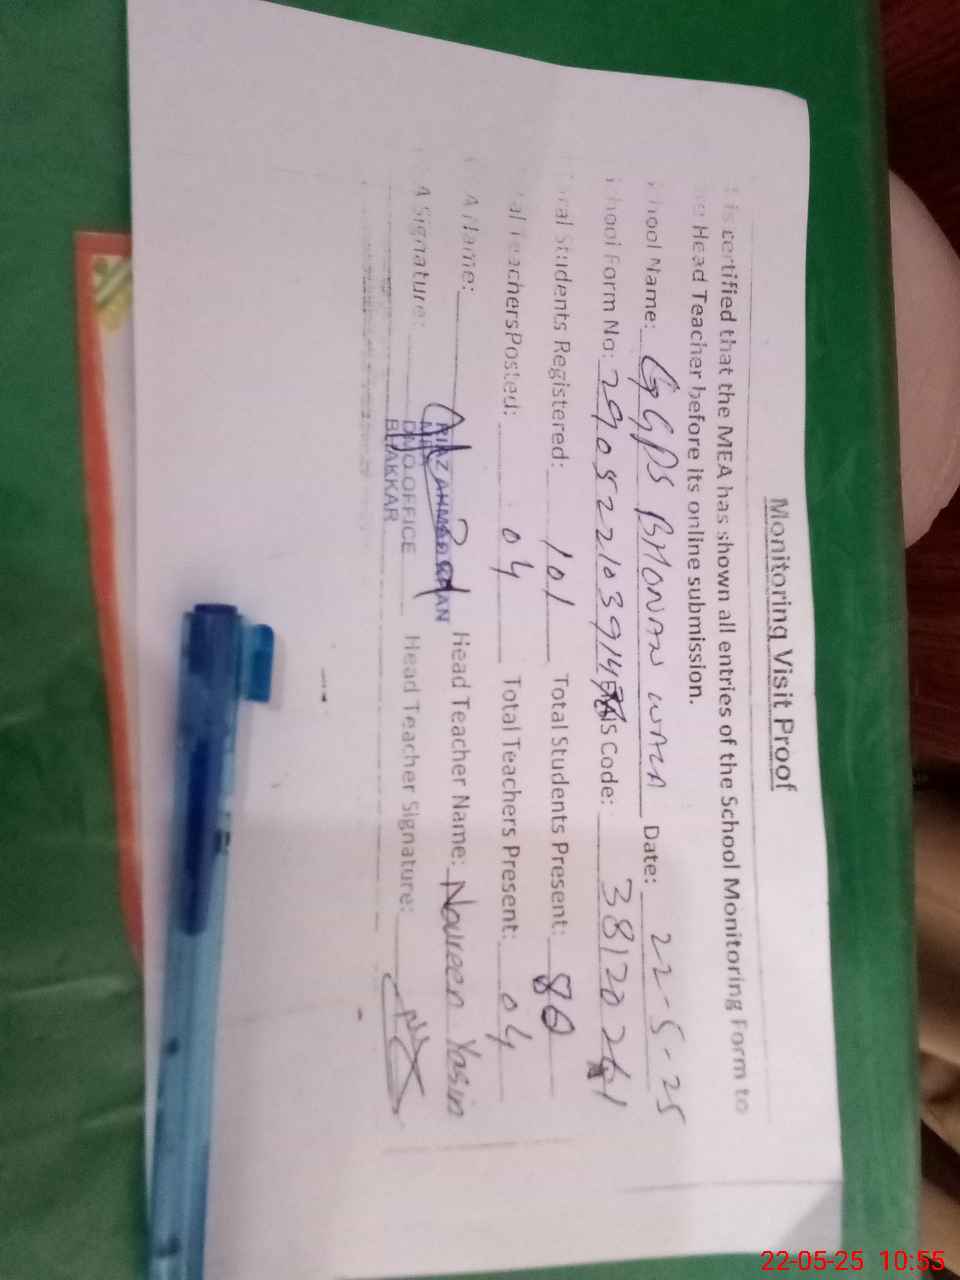 Monitoring Visit Proof
is certified that the MEA has shown all entries of the School Monitoring Form to
Head Teacher before its online submission.
School Name: GGPS BHONAN WALA Date: 22-5-25
School Form No: Code:
Total Students Registered: 101 Total Students Present: 80
Total Teachers Posted: 04 Total Teachers Present: 04
A Name: Head Teacher Name: Noureen Yasin
A Signature: Head Teacher Signature:
DMO OFFICE
BHAKKAR
22-05-25 10:55